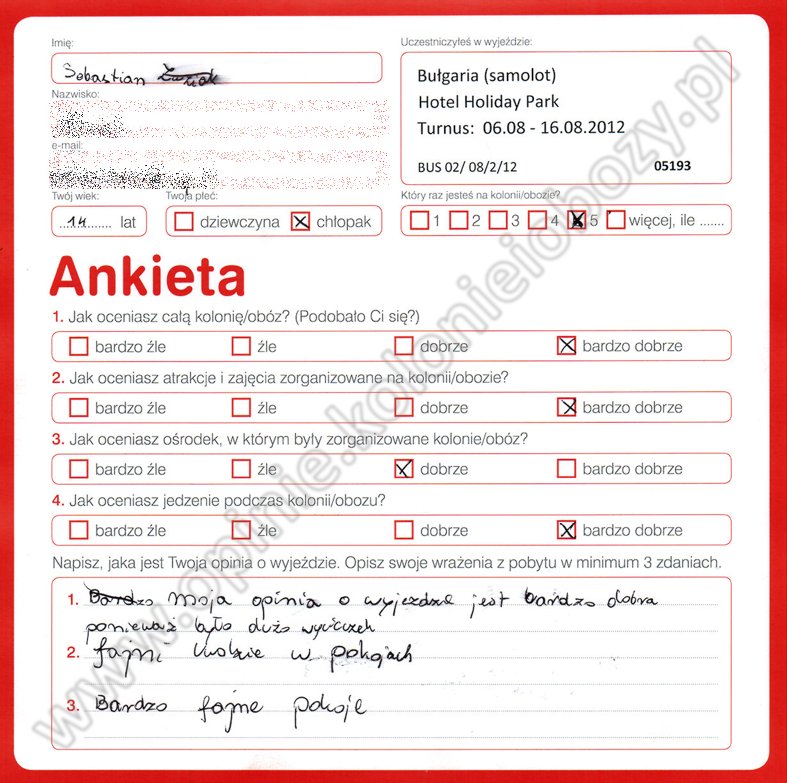 Imię:
Sebastian
Nazwisko:
e-mail:
Twój wiek:
14 lat
Twoja płeć:
dziewczyna chłopak
Uczestniczyłeś w wyjeździe:
Bułgaria (samolot)
Hotel Holiday Park
Turnus: 06.08 - 16.08.2012
BUS 02/ 08/2/12 05193
Który raz jesteś na kolonii/obozie?
1 2 3 4 5 więcej, ile .......
Ankieta
1. Jak oceniasz całą kolonię/obóz? (Podobało Ci się?)
bardzo źle źle dobrze bardzo dobrze
2. Jak oceniasz atrakcje i zajęcia zorganizowane na kolonii/obozie?
bardzo źle źle dobrze bardzo dobrze
3. Jak oceniasz ośrodek, w którym były zorganizowane kolonie/obóz?
bardzo źle źle dobrze bardzo dobrze
4. Jak oceniasz jedzenie podczas kolonii/obozu?
bardzo źle źle dobrze bardzo dobrze
Napisz, jaka jest Twoja opinia o wyjeździe. Opisz swoje wrażenia z pobytu w minimum 3 zdaniach.
1. Bardzo moja opinia o wyjeździe jest bardzo dobra
ponieważ było dużo wycieczek
2. fajni ludzie w pokojach
3. Bardzo fajne pokoje
www.opinie.kolonieiobozy.pl